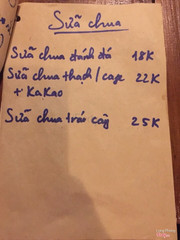 Sữa chua
Sữa chua đánh đá 18K
Sữa chua thạch / cafe 22K
+ Kakao
Sữa chua trái cây 25K